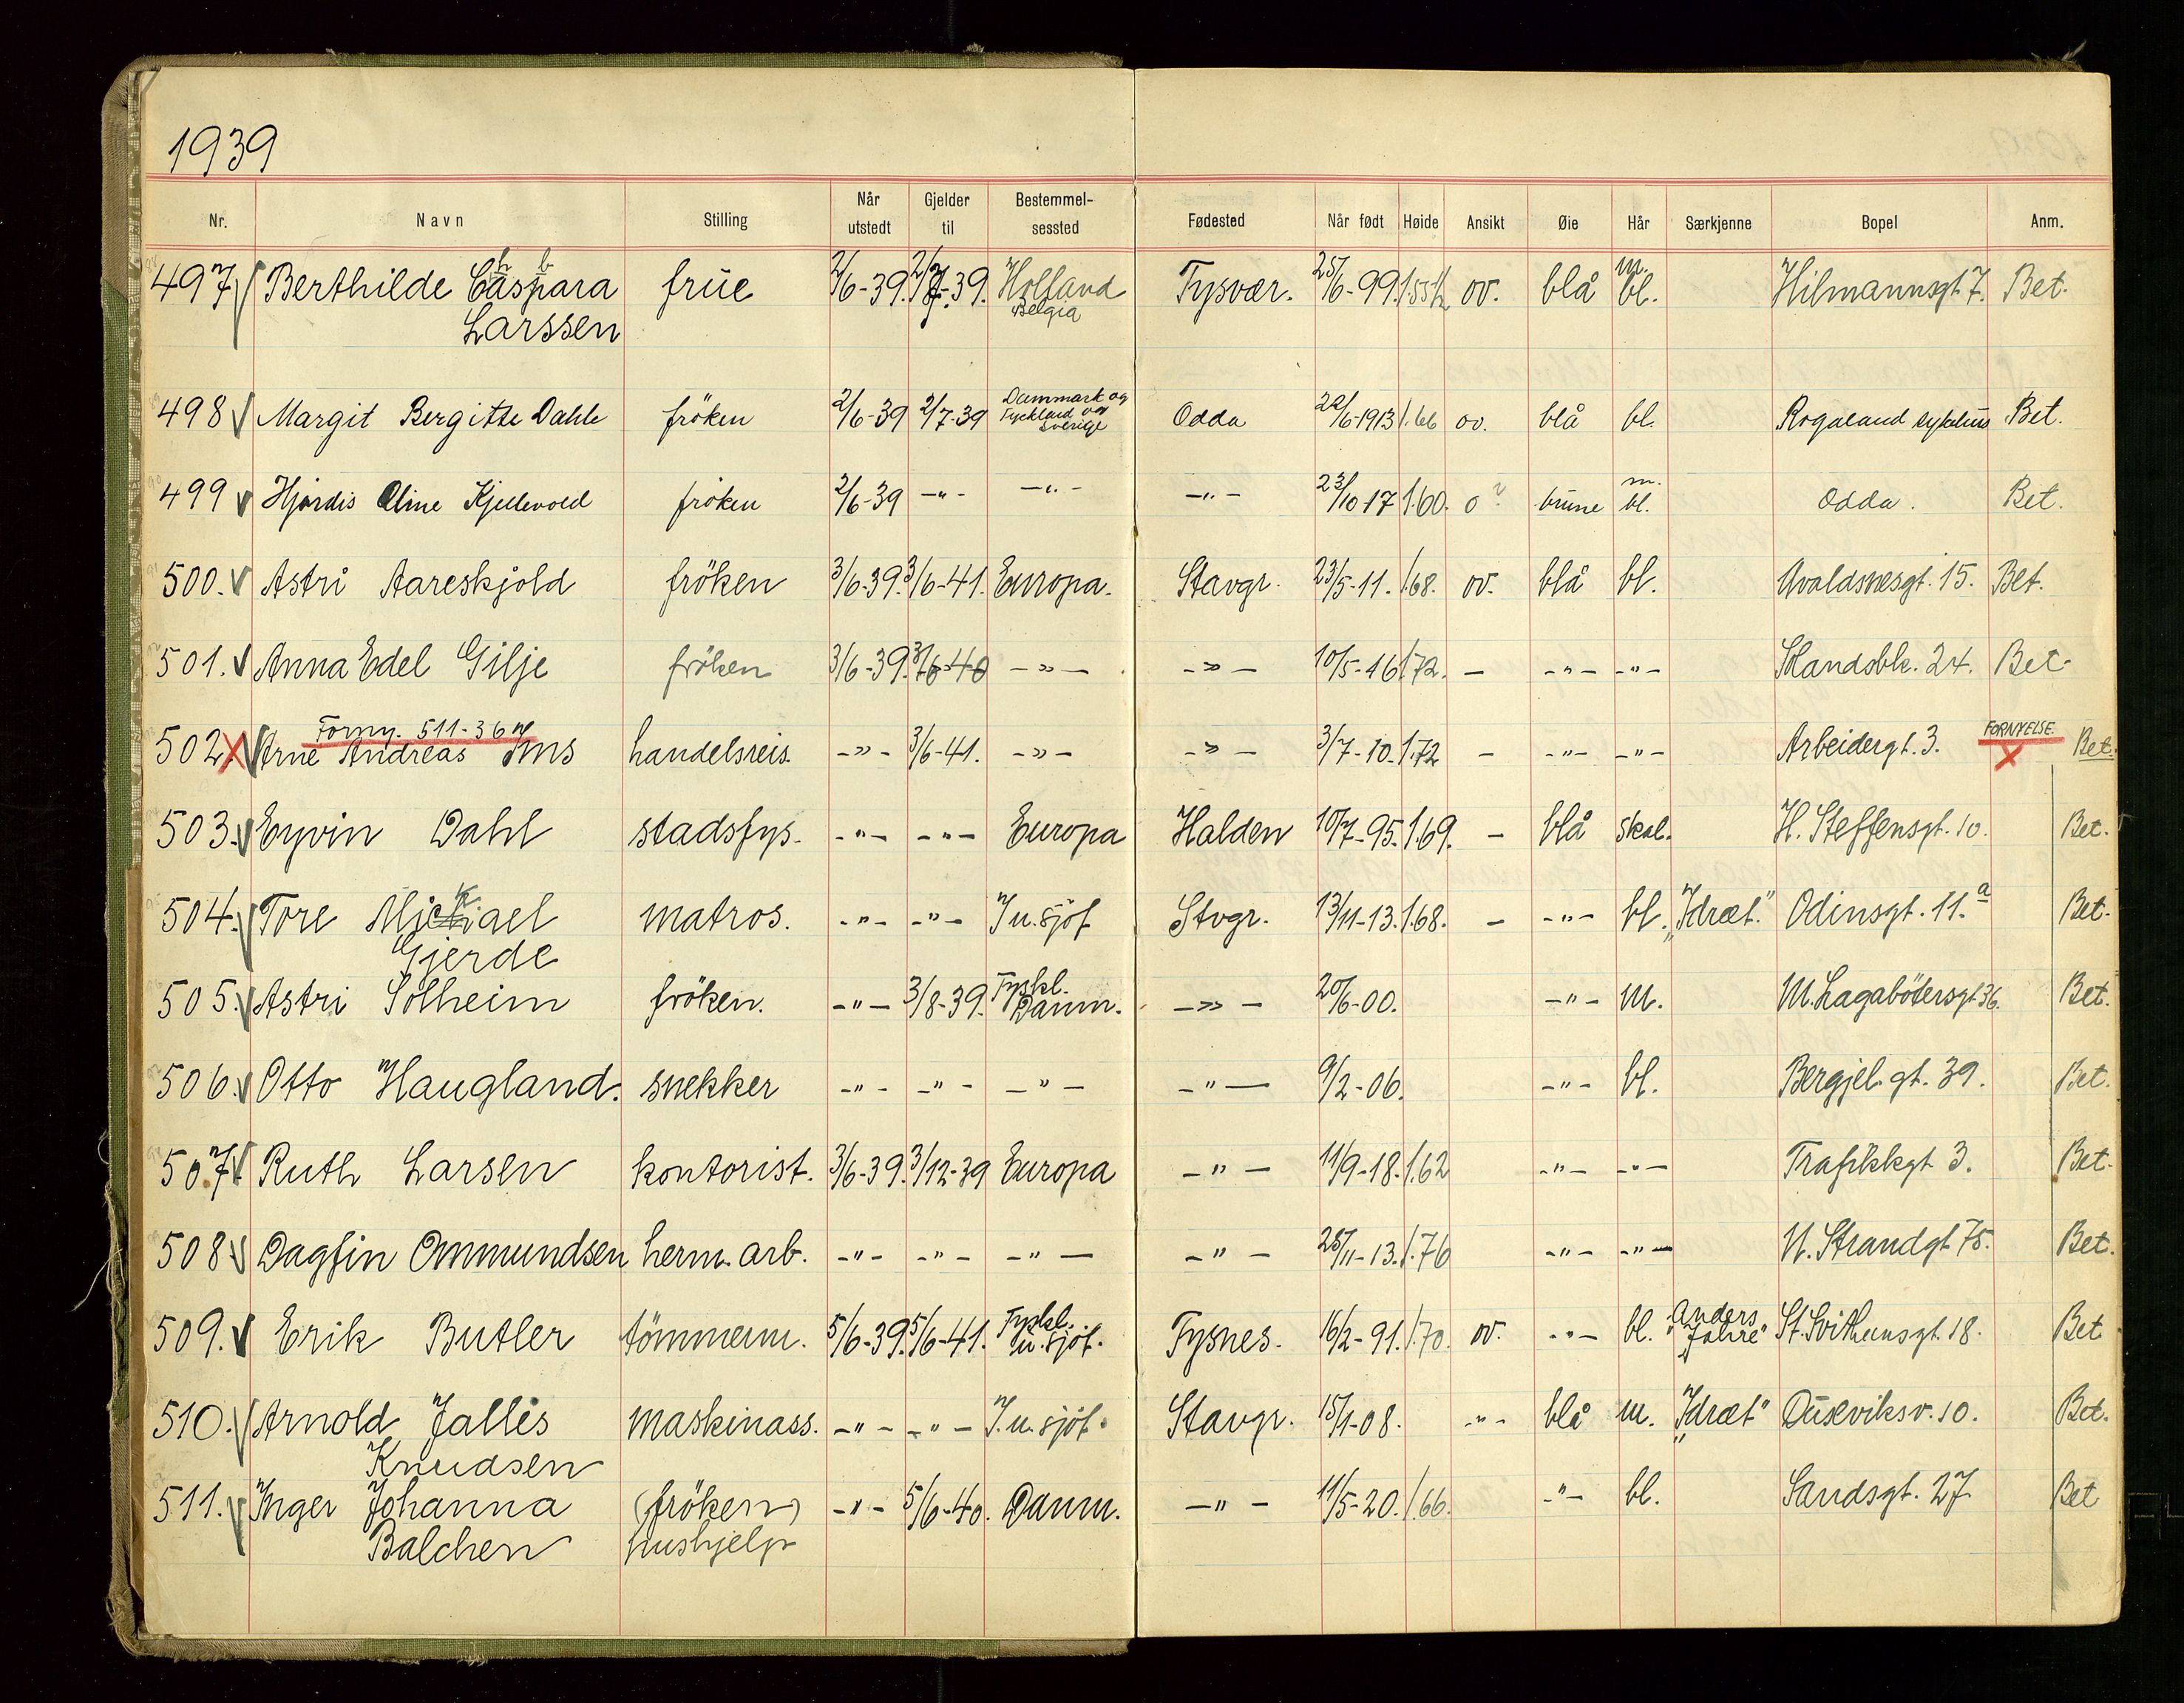 1939
Nr. Navn Stilling Når utstedt Gjelder til Bestemmel-sessted Fødested Når født Høide Ansikt Øie Hår Særkjenne Bopel Anm.
497 Berthilde Caspara frue 2/6-39. 2/7-39. Holland Tysvær. 25/6-99. 1.55½ ov. blå m. bl. Hilmannsgt. 7. Bet.
Larssen Belgia
498 Margit Bergitte Dahle fröken 2/6-39 2/7-39 Dammark og Tyskland og Sverige Odda 22/6-1913 1.66 ov. blå bl. Rogaland sykehus Bet.
499 Hjördis Oline Kjellevold fröken 2/6-39 -"- -"- -"- 23/10 17 1.60. o brune m. bl. Odda. Bet.
500. Astri Aareskjold fröken 3/6-39. 3/6-41. Europa. Stavgr. 23/5-11. 1.68. ov. blå bl. Avaldsnesgt. 15. Bet.
501. Anna Edel Gilje fröken 3/6-39. 3/6-40 -»- -»- 10/5-16 1.72. - -"- -"- Solandsbk. 24. Bet.
Forny. 511-36
502 X Arne Andreas Ims handelsreis. -»- 3/6-41. -»- -»- 3/7-10. 1.72 - -"- -"- Arbeidergt. 3. FORNYELSE. X Bet.
503. Eyvin Dahl stadsfys. -"- -"- Europa Halden 10/7-95. 1.69. - blå skal. H. Steffensgt. 10. Bet.
504. Tore Mickael matros. -"- -"- I u. sjöf. Stvgr. 13/11-13. 1.68. - -"- bl. "Idræt." Odinsgt. 11.a Bet.
Gjerde
505. Astri Solheim fröken. -"- 3/8-39. Tyskl. Danm. -»- 20/6-00. -"- m. M. Lagabötersgt 36. Bet.
506. Otto Haugland. snekker -"- -"- -"- -"- 9/2-06. -"- bl. Bergjel. gt. 39. Bet.
507 Ruth Larsen kontorist. 3/6-39. 3/12-39 Europa -"- 11/9-18. 1.62 -"- -"- Trafikkgt 3. Bet.
508 Dagfin Ommundsen herm. arb. -"- -"- -"- -"- 25/11-13. 1.76 -"- -"- N. Strandgt 75. Bet.
509. Erik Butler tömmerm. 5/6-39. 5/6-41. Tyskl. I u. sjöf. Tysnes. 16/2-91. 1.70. ov. -"- bl. "Anders Jahre" St. Svithunsgt. 18. Bet
510. Arnold Jalles maskinass. -"- -"- I. u. sjöf. Stavgr. 15/1-08. -"- blå m. "Idræt" Duseviksv. 10. Bet.
Knudsen
511. Inger Johanna (fröken) -"- 5/6-40. Danm. -"- 11/5-20. 1.66. -"- bl. Sandsgt. 27. Bet
Balchen hushjelp